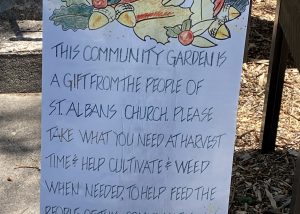 THIS COMMUNITY GARDEN IS
A GIFT FROM THE PEOPLE OF
ST. ALBANS CHURCH. PLEASE
TAKE WHAT YOU NEED AT HARVEST
TIME & HELP CULTIVATE & WEED
WHEN NEEDED, TO HELP FEED THE
PEOPLE OF